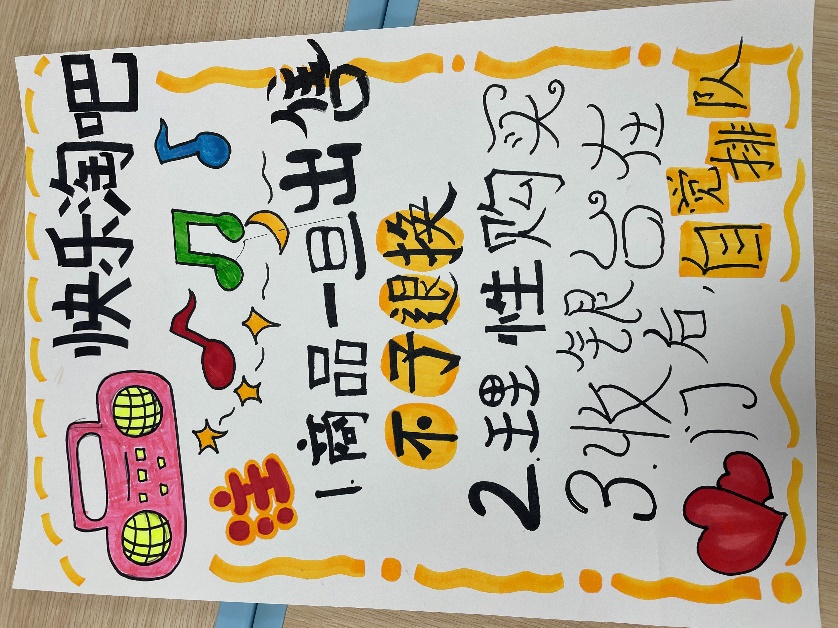 快乐淘吧
注
1.商品一旦出售
不予退换
2.理性购买
3.收银台在
门右,自觉排队